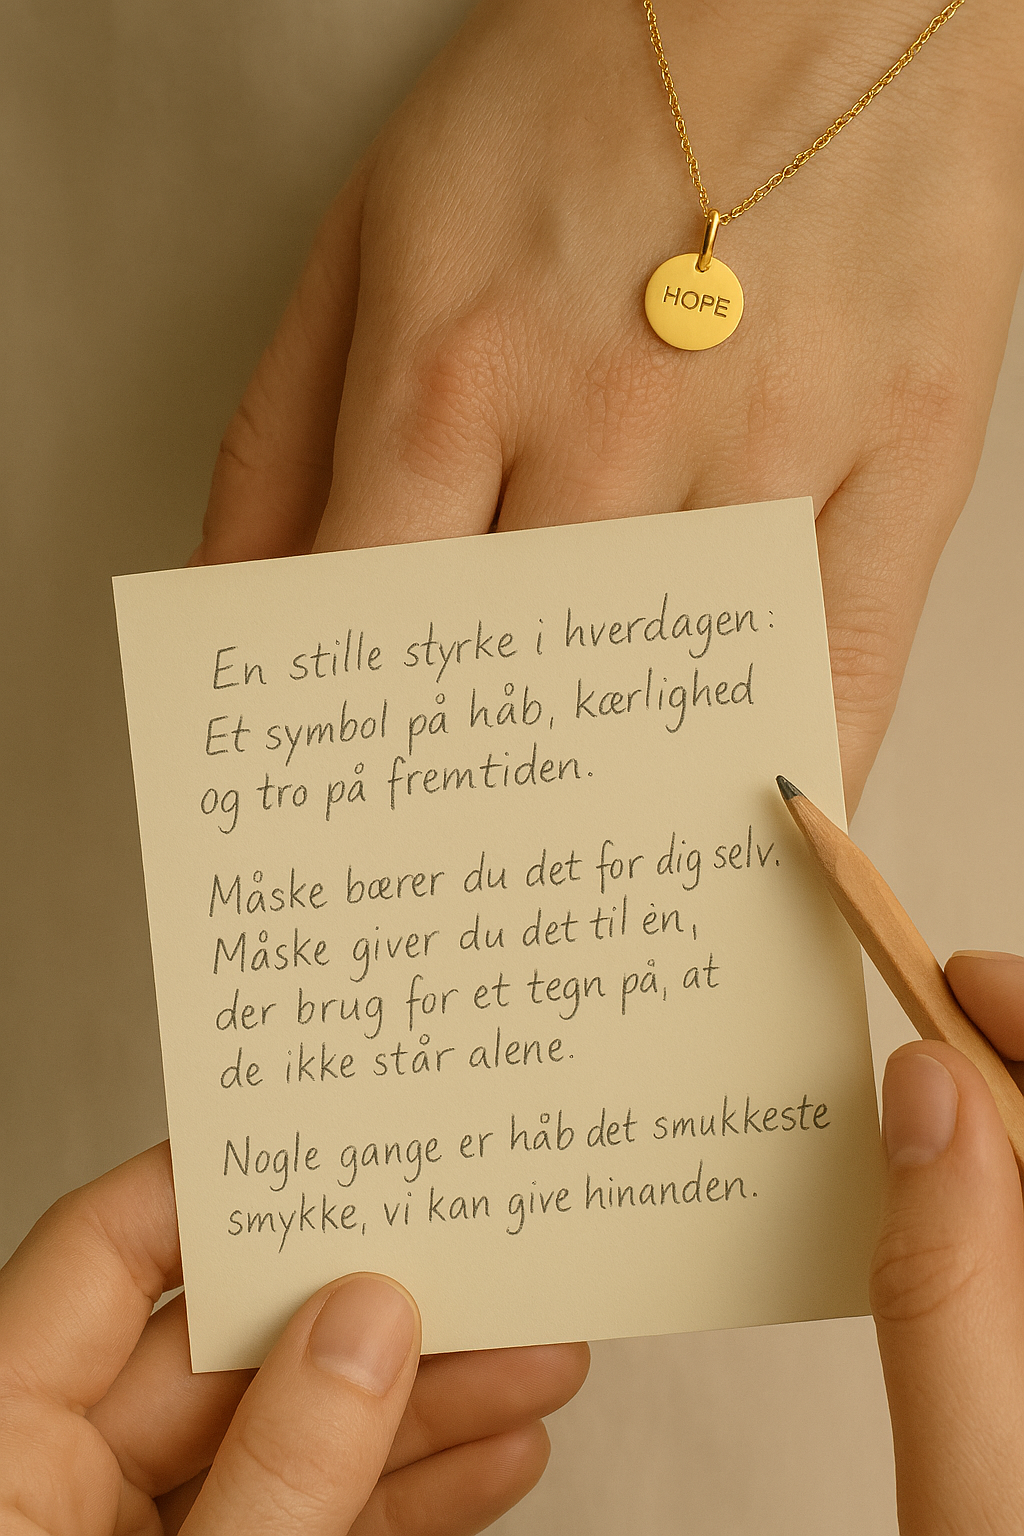 HOPE
En stille styrke i hverdagen:
Et symbol på håb, kærlighed
og tro på fremtiden.
Måske bærer du det for dig selv.
Måske giver du det til èn,
der brug for et tegn på, at
de ikke står alene.
Nogle gange er håb det smukkeste
smykke, vi kan give hinanden.